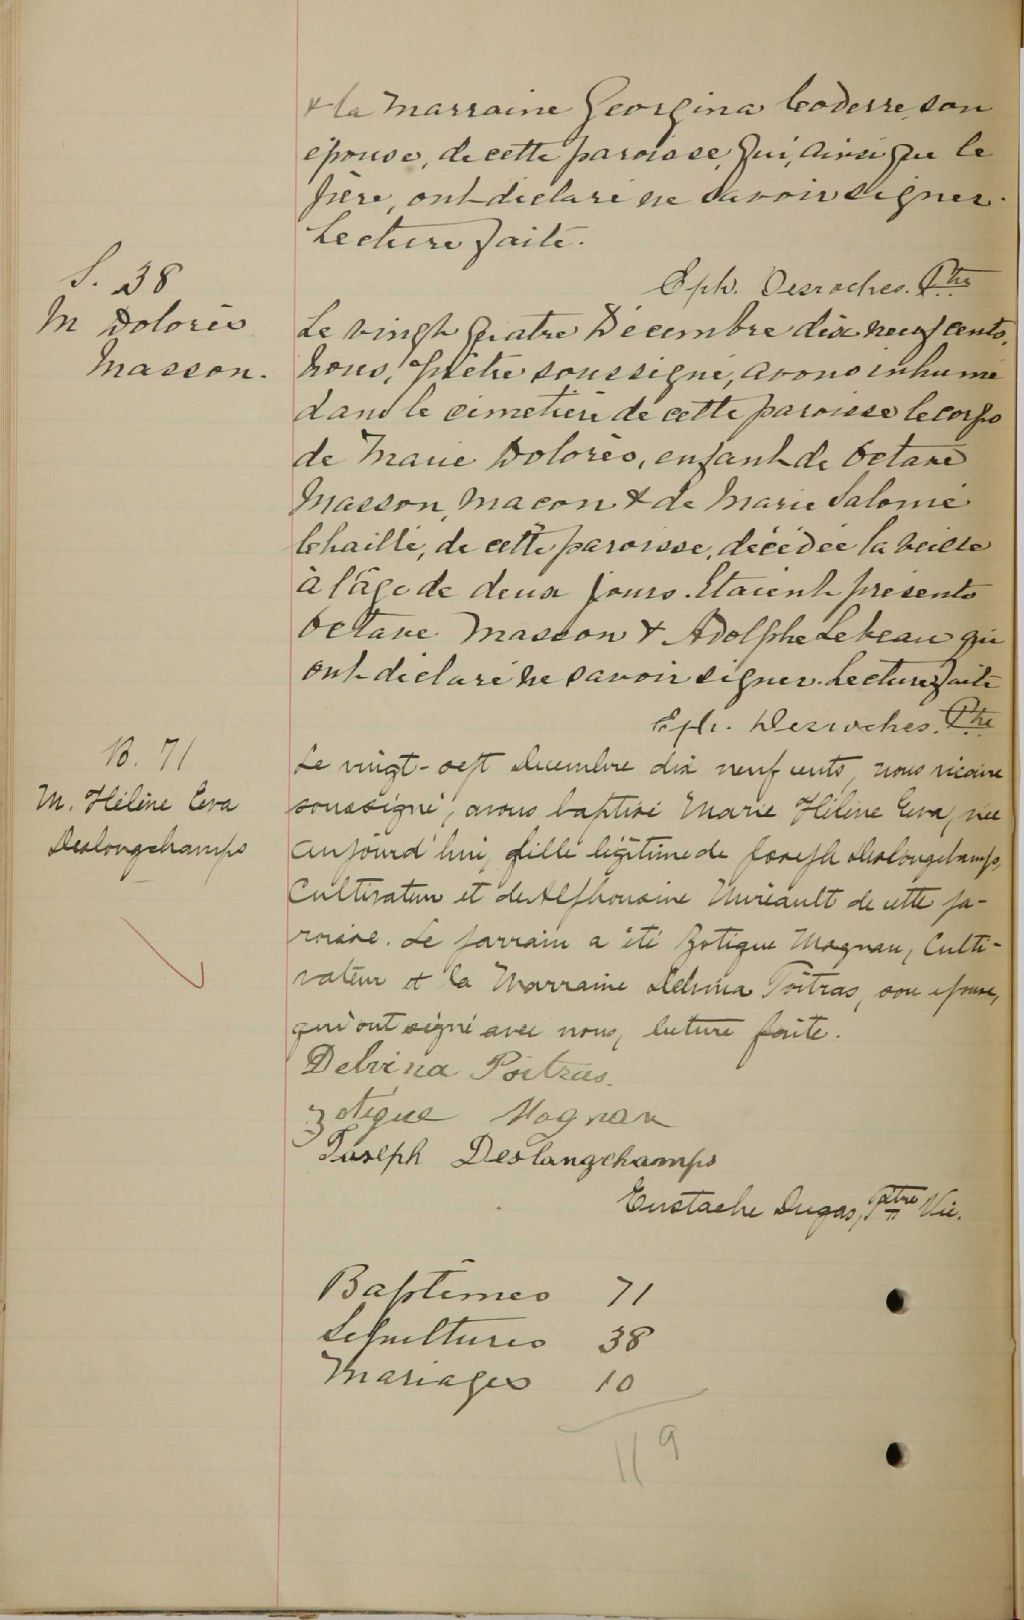 & la Marraine Georgina Coderre, son
épouse, de cette paroisse, qui, ainsi que le
père, ont déclaré ne savoir signer.
Lecture faite.
Eph. Desroches. Ptre
S. 38
M Dolorès
Masson.
Le vingt quatre Décembre dix neuf cents,
nous, prêtre soussigné, avons inhumé
dans le cimetière de cette paroisse le corps
de Marie Dolorès, enfant de Octave
Masson, maçon & de Marie Salomé
Chaillé, de cette paroisse, décédée la veille
à l'âge de deux jours. Etaient présents
Octave Masson & Adolphe Lebeau qui
ont déclaré ne savoir signer. Lecture faite
Eph. Desroches. Ptre
B. 71
M. Hélène Eva
Deslongchamps
Le vingt-sept Décembre dix neuf cents, nous vicaire
soussigné, avons baptisé Marie Hélène Eva, née
aujourd'hui, fille légitime de Joseph Deslongchamps,
Cultivateur et de Alphonsine Muréault de cette pa-
roisse. Le parrain a été Zotique Magnan, Culti-
vateur et la Marraine Delvina Poitras, son épouse,
qui ont signé avec nous, lecture faite.
Delvina Poitras.
Zotique Magnan
Joseph Deslongchamps
Eustache Dugas, Ptre Vic.
Baptêmes 71
Sépultures 38
Mariages 10
119